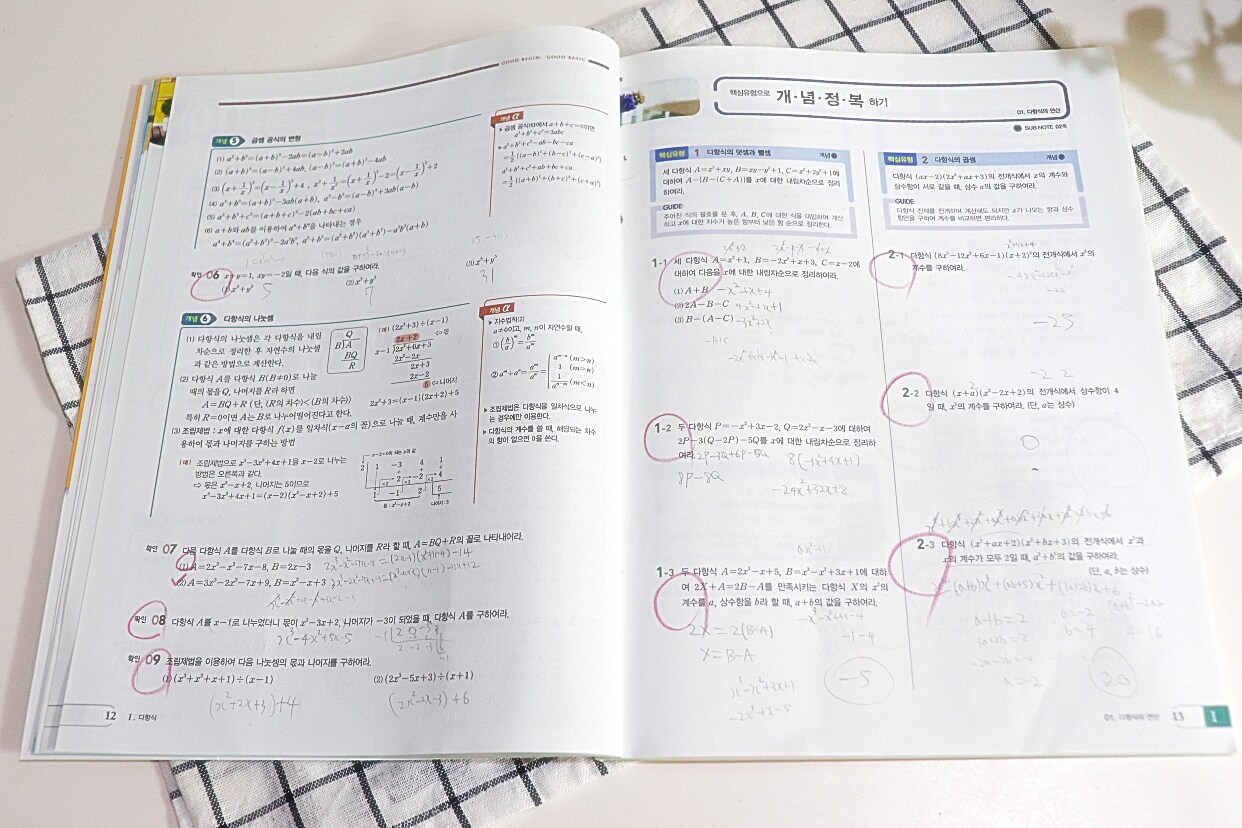 GOOD BEGIN, GOOD BASIC
개념 5 곱셈 공식의 변형
(1) a²+b²=(a+b)²-2ab=(a-b)²+2ab
(2) (a+b)²=(a-b)²+4ab, (a-b)²=(a+b)²-4ab
(4) a³+b³=(a+b)³-3ab(a+b), a³-b³=(a-b)³+3ab(a-b)
(5) a²+b²+c²=(a+b+c)²-2(ab+bc+ca)
(6) a+b와 ab를 이용하여 a⁴+b⁴을 나타내는 경우
개념 α
▶ 곱셈 공식(10)에서 a+b+c=0이면
a³+b³+c³=3abc
▶ a²+b²+c²-ab-bc-ca
=½{(a-b)²+(b-c)²+(c-a)²}
a²+b²+c²+ab+bc+ca
=½{(a+b)²+(b+c)²+(c+a)²}
확인 06 x+y=1, xy=-2일 때, 다음 식의 값을 구하여라.
(1) x²+y² 5
(2) x³+y³ 7
(3) x⁵+y⁵
31
개념 6 다항식의 나눗셈
(1) 다항식의 나눗셈은 각 다항식을 내림
차순으로 정리한 후 자연수의 나눗셈
과 같은 방법으로 계산한다.
Q
B)A
BQ
R
|예| (2x²+3)÷(x-1)
2x+2 ⇦몫
x-1)2x²+0x+3
2x²-2x
2x+3
2x-2
5 ⇦나머지
2x²+3=(x-1)(2x+2)+5
(2) 다항식 A를 다항식 B(B≠0)로 나눌
때의 몫을 Q, 나머지를 R라 하면
A=BQ+R (단, (R의 차수)<(B의 차수))
특히 R=0이면 A는 B로 나누어떨어진다고 한다.
(3) 조립제법 : x에 대한 다항식 f(x)를 일차식(x-α의 꼴)으로 나눌 때, 계수만을 사
용하여 몫과 나머지를 구하는 방법
|예| 조립제법으로 x³-3x²+4x+1을 x-2로 나누는
방법은 오른쪽과 같다.
⇨ 몫은 x²-x+2, 나머지는 5이므로
x³-3x²+4x+1=(x-2)(x²-x+2)+5
2 1 -3 4 1
2 -2 4
1 -1 2 5
몫 : x²-x+2 나머지 : 5
개념 α
▶ 지수법칙(2)
a≠0이고, m, n이 자연수일 때,
▶ 조립제법은 다항식을 일차식으로 나누
는 경우에만 이용한다.
▶ 다항식의 계수를 쓸 때, 해당되는 차수
의 항이 없으면 0을 쓴다.
확인 07 다음 다항식 A를 다항식 B로 나눌 때의 몫을 Q, 나머지를 R라 할 때, A=BQ+R의 꼴로 나타내어라.
(1) A=2x³-x²-7x-8, B=2x-3
(2) A=3x³-2x²-7x+9, B=x²-x+3
확인 08 다항식 A를 x-1로 나누었더니 몫이 x²-3x+2, 나머지가 -3이 되었을 때, 다항식 A를 구하여라.
확인 09 조립제법을 이용하여 다음 나눗셈의 몫과 나머지를 구하여라.
(1) (x³+x²+x+1)÷(x-1)
(2) (2x³-5x+3)÷(x+1)
(x²+2x+3)+4
(2x²-2x-3)+6
12 I. 다항식
핵심유형으로 개·념·정·복 하기
01. 다항식의 연산
SUB NOTE 02쪽
핵심유형 1 다항식의 덧셈과 뺄셈 개념
세 다항식 A=x²+xy, B=xy-y²+1, C=x²+2y²+1에
대하여 A-{B-(C+A)}를 x에 대한 내림차순으로 정리
하여라.
GUIDE
주어진 식의 괄호를 푼 후, A, B, C에 대한 식을 대입하여 계산
하고 x에 대한 차수가 높은 항부터 낮은 항 순으로 정리한다.
1-1 세 다항식 A=x²+1, B=-2x²+x+3, C=x-2에
대하여 다음을 x에 대한 내림차순으로 정리하여라.
(1) A+B -x²+x+4
(2) 2A-B-C
(3) B-(A-C)
1-2 두 다항식 P=-x²+3x-2, Q=2x²-x-3에 대하여
2P-3(Q-2P)-5Q를 x에 대한 내림차순으로 정리하
여라. 2P-3Q+6P-5Q
8P-8Q
8(-3x²+4x+1)
-24x²+32x+8
1-3 두 다항식 A=2x³-x+5, B=x³-x²+3x+1에 대하
여 2X+A=2B-A를 만족시키는 다항식 X의 x²의
계수를 a, 상수항을 b라 할 때, a+b의 값을 구하여라.
2X=2(B-A)
X=B-A
-1-4
-5
핵심유형 2 다항식의 곱셈 개념
다항식 (ax-2)(2x²+ax+3)의 전개식에서 x의 계수와
상수항이 서로 같을 때, 상수 a의 값을 구하여라.
GUIDE
다항식 전체를 전개하여 계산해도 되지만 x가 나오는 항과 상수
항만을 구하여 계수를 비교하면 편리하다.
2-1 다항식 (8x³-12x²+6x-1)(x+2)²의 전개식에서 x²의
계수를 구하여라.
-25
2-2 다항식 (x+a)(x²-2x+2)의 전개식에서 상수항이 4
일 때, x²의 계수를 구하여라. (단, a는 상수)
0
2-3 다항식 (x²+ax+2)(x²+bx+3)의 전개식에서 x³과
x의 계수가 모두 2일 때, a²+b²의 값을 구하여라.
(단, a, b는 상수)
a+b=2
3a+2b=2
a=-2
b=4
20
01. 다항식의 연산 13 I